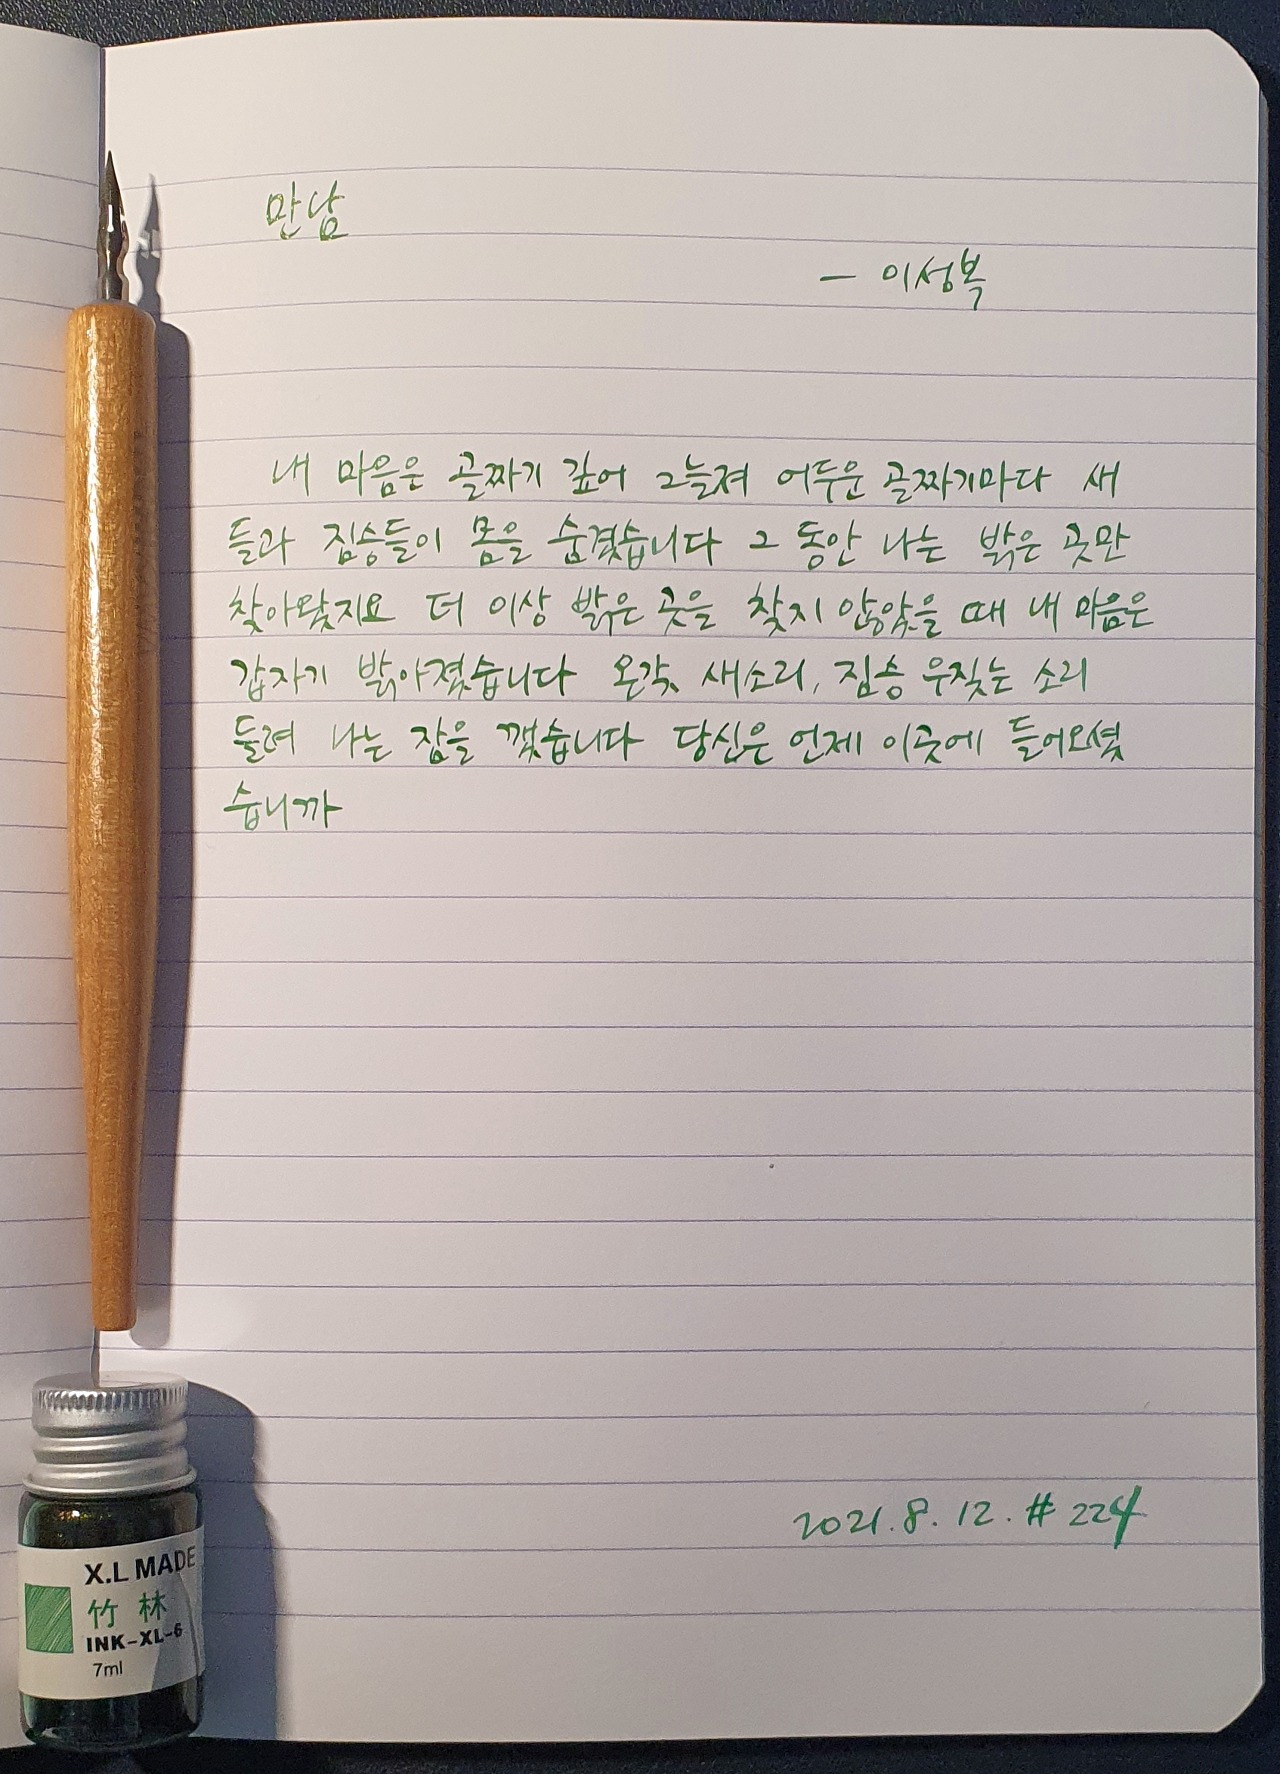 만남
— 이성복
내 마음은 골짜기 깊어 그늘져 어두운 골짜기마다 새
들과 짐승들이 몸을 숨겼습니다 그 동안 나는 밝은 곳만
찾아왔지요 더 이상 밝은 곳을 찾지 않았을 때 내 마음은
갑자기 밝아졌습니다 온갖 새소리, 짐승 우짖는 소리
들려 나는 잠을 깼습니다 당신은 언제 이곳에 들어오셨
습니까
2021. 8. 12. # 224
X.L MADE
竹林
INK-XL-6
7ml